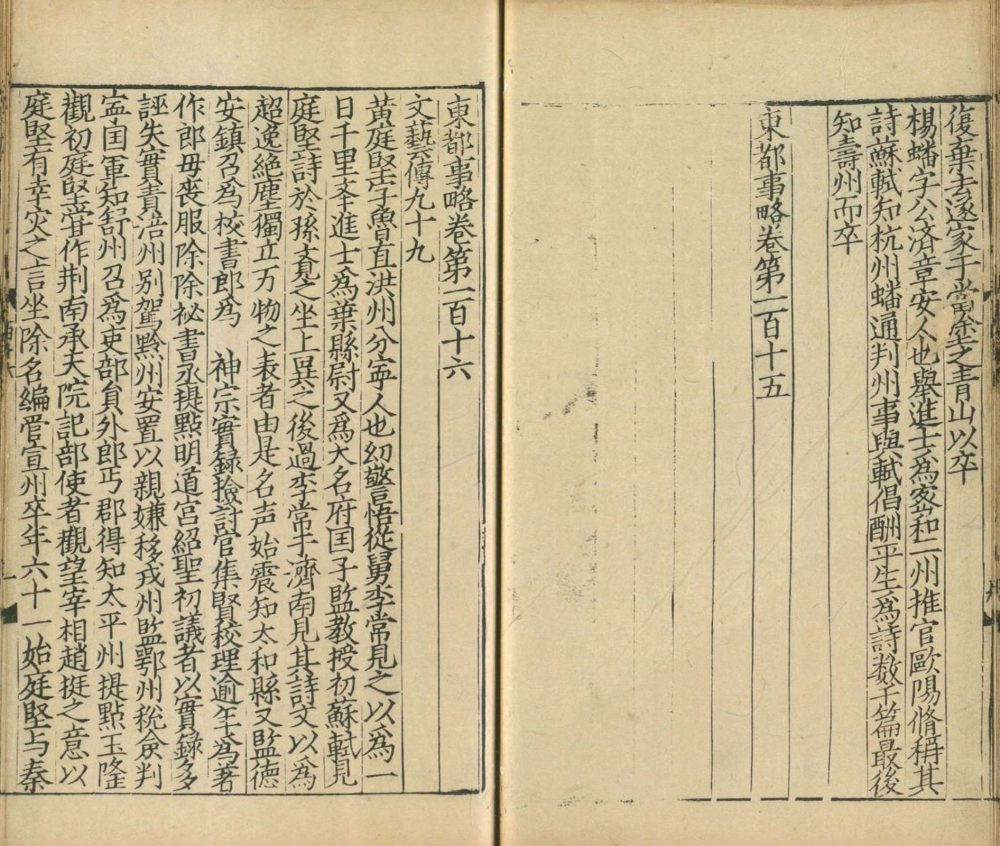 復棄去遂家于當塗之青山以卒
楊蟠字公済章安人也舉進士爲宻和二州推官歐陽脩稱其
詩蘇軾知杭州蟠通判州事與軾倡酬平生爲詩数千篇最後
知壽州而卒
東都事略卷第一百十五
東都事略卷第一百十六
文藝傳九十九
黄庭堅字魯直洪州分寧人也幼警悟從舅李常見之以爲一
日千里䇿進士爲葉縣尉又爲大名府囯子監教授初蘇軾見
庭堅詩於孫覺之坐上異之後過李常于濟南見其詩文以爲
超逸絶塵獨立万物之表者由是名声始震知太和縣又監德
安鎮召爲校書郎爲 神宗實録檢討官集賢校理逾年爲著
作郎母喪服除除祕書丞提點明道宫紹聖初議者以實錄多
誣失實責涪州别駕黔州安置以親嫌移戎州監鄂州稅僉判
寍囯軍知舒州召爲吏部負外郎丐郡得知太平州提點玉隆
觀初庭堅嘗作荆南承天院記部使者觀望宰相趙挺之意以
庭堅有幸灾之言坐除名編管宣州卒年六十一始庭堅与秦